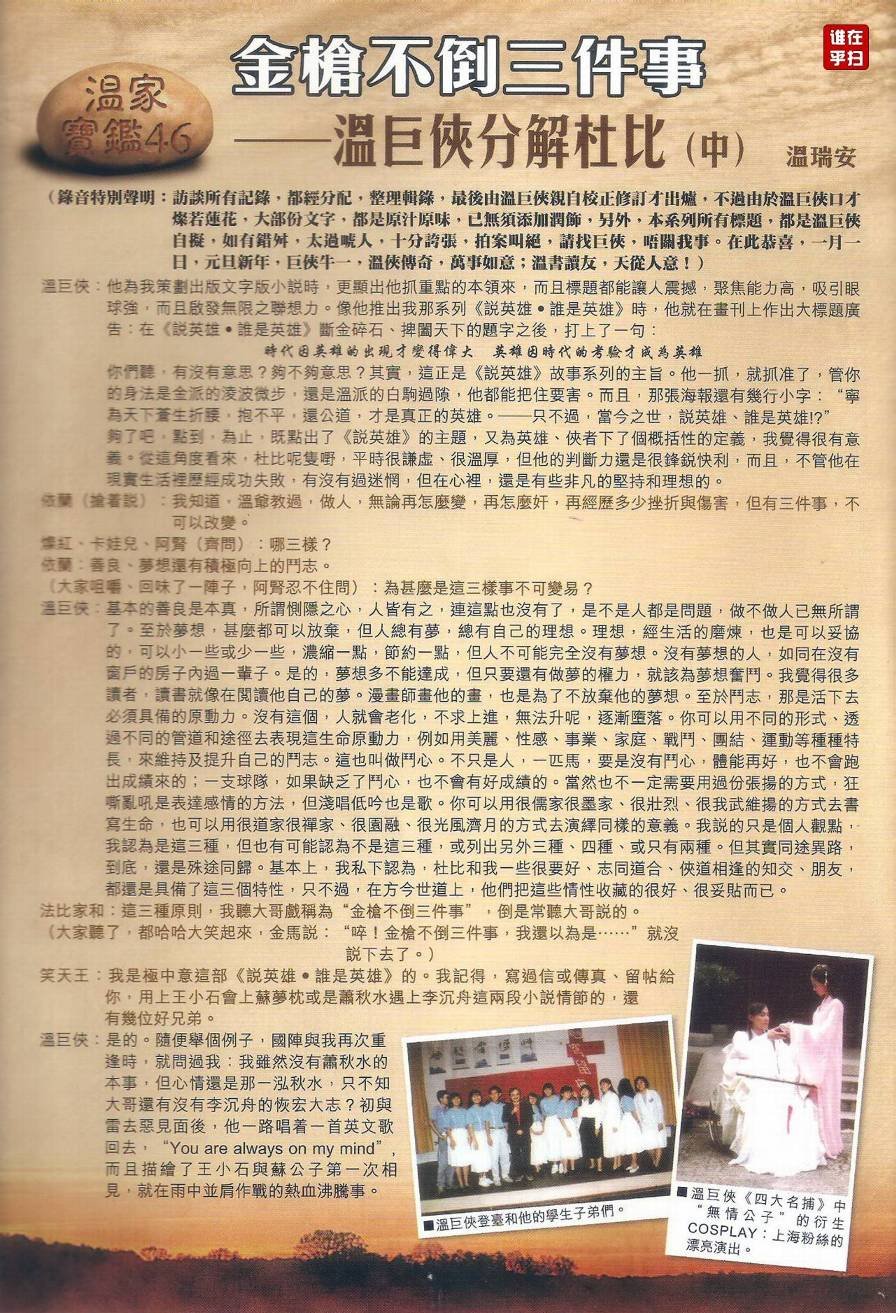 誰在
乎扫
金槍不倒三件事
溫家
寶鑑46
——溫巨俠分解杜比（中） 溫瑞安
（錄音特別聲明：訪談所有記錄，都經分配，整理輯錄，最後由溫巨俠親自校正修訂才出爐，不過由於溫巨俠口才
燦若蓮花，大部份文字，都是原汁原味，已無須添加潤飾，另外，本系列所有標題，都是溫巨俠
自擬，如有錯舛，太過唬人，十分誇張，拍案叫絕，請找巨俠，唔關我事。在此恭喜，一月一
日，元旦新年，巨俠牛一，溫俠傳奇，萬事如意；溫書讀友，天從人意！）
溫巨俠：他為我策劃出版文字版小說時，更顯出他抓重點的本領來，而且標題都能讓人震撼，聚焦能力高，吸引眼
球強，而且啟發無限之聯想力。像他推出我那系列《說英雄●誰是英雄》時，他就在畫刊上作出大標題廣
告：在《說英雄●誰是英雄》斷金碎石、捭闔天下的題字之後，打上了一句：
時代因英雄的出現才變得偉大 英雄因時代的考驗才成為英雄
你們聽，有沒有意思？夠不夠意思？其實，這正是《說英雄》故事系列的主旨。他一抓，就抓准了，管你
的身法是金派的凌波微步，還是溫派的白駒過隙，他都能把住要害。而且，那張海報還有幾行小字：“寧
為天下蒼生折腰，抱不平，還公道，才是真正的英雄。——只不過，當今之世，説英雄、誰是英雄!?”
夠了吧，點到，為止，既點出了《說英雄》的主題，又為英雄、俠者下了個概括性的定義，我覺得很有意
義。從這角度看來，杜比呢隻嘢，平時很謙虛、很溫厚，但他的判斷力還是很鋒銳快利，而且，不管他在
現實生活裡歷經成功失敗，有沒有過迷惘，但在心裡，還是有些非凡的堅持和理想的。
依蘭（搶着説）：我知道，溫爺教過，做人，無論再怎麼變，再怎麼奸，再經歷多少挫折與傷害，但有三件事，不
可以改變。
燦紅、卡娃兒、阿腎（齊問）：哪三樣？
依蘭：善良、夢想還有積極向上的鬥志。
（大家咀嚼、回味了一陣子，阿腎忍不住問）：為甚麼是這三樣事不可變易？
溫巨俠：基本的善良是本真，所謂惻隱之心，人皆有之，連這點也沒有了，是不是人都是問題，做不做人已無所謂
了。至於夢想，甚麼都可以放棄，但人總有夢，總有自己的理想。理想，經生活的磨煉，也是可以妥協
的，可以小一些或少一些，濃縮一點，節約一點，但人不可能完全沒有夢想。沒有夢想的人，如同在沒有
窗戶的房子內過一輩子。是的，夢想多不能達成，但只要還有做夢的權力，就該為夢想奮鬥。我覺得很多
讀者，讀書就像在閱讀他自己的夢。漫畫師畫他的畫，也是為了不放棄他的夢想。至於鬥志，那是活下去
必須具備的原動力。沒有這個，人就會老化，不求上進，無法升呢，逐漸墮落。你可以用不同的形式、透
過不同的管道和途徑去表現這生命原動力，例如用美麗、性感、事業、家庭、戰鬥、團結、運動等種種特
長，來維持及提升自己的鬥志。這也叫做鬥心。不只是人，一匹馬，要是沒有鬥心，體能再好，也不會跑
出成績來的；一支球隊，如果缺乏了鬥心，也不會有好成績的。當然也不一定需要用過份張揚的方式，狂
嘶亂吼是表達感情的方法，但淺唱低吟也是歌。你可以用很儒家很墨家、很壯烈、很我武維揚的方式去書
寫生命，也可以用很道家很禪家、很圓融、很光風濟月的方式去演繹同樣的意義。我説的只是個人觀點，
我認為是這三種，但也有可能認為不是這三種，或列出另外三種、四種、或只有兩種。但其實同途異路，
到底，還是殊途同歸。基本上，我私下認為，杜比和我一些很要好、志同道合、俠道相逢的知交、朋友，
都還是具備了這三個特性，只不過，在方今世道上，他們把這些情性收藏的很好、很妥貼而已。
法比家和：這三種原則，我聽大哥戲稱為“金槍不倒三件事”，倒是常聽大哥説的。
（大家聽了，都哈哈大笑起來，金馬説：“啐！金槍不倒三件事，我還以為是……”就沒
說下去了。）
笑天王：我是極中意這部《說英雄●誰是英雄》的。我記得，寫過信或傳真、留帖給
你，用上王小石會上蘇夢枕或是蕭秋水遇上李沉舟這兩段小説情節的，還
有幾位好兄弟。
溫巨俠：是的。隨便舉個例子，國陣與我再次重
逢時，就問過我：我雖然沒有蕭秋水的
本事，但心情還是那一泓秋水，只不知
大哥還有沒有李沉舟的恢宏大志？初與
雷去惡見面後，他一路唱着一首英文歌
回去，“You are always on my mind”，
而且描繪了王小石與蘇公子第一次相
見，就在雨中並肩作戰的熱血沸騰事。
■溫巨俠登臺和他的學生子弟們。
■溫巨俠《四大名捕》中
“無情公子”的衍生
COSPLAY：上海粉絲的
漂亮演出。